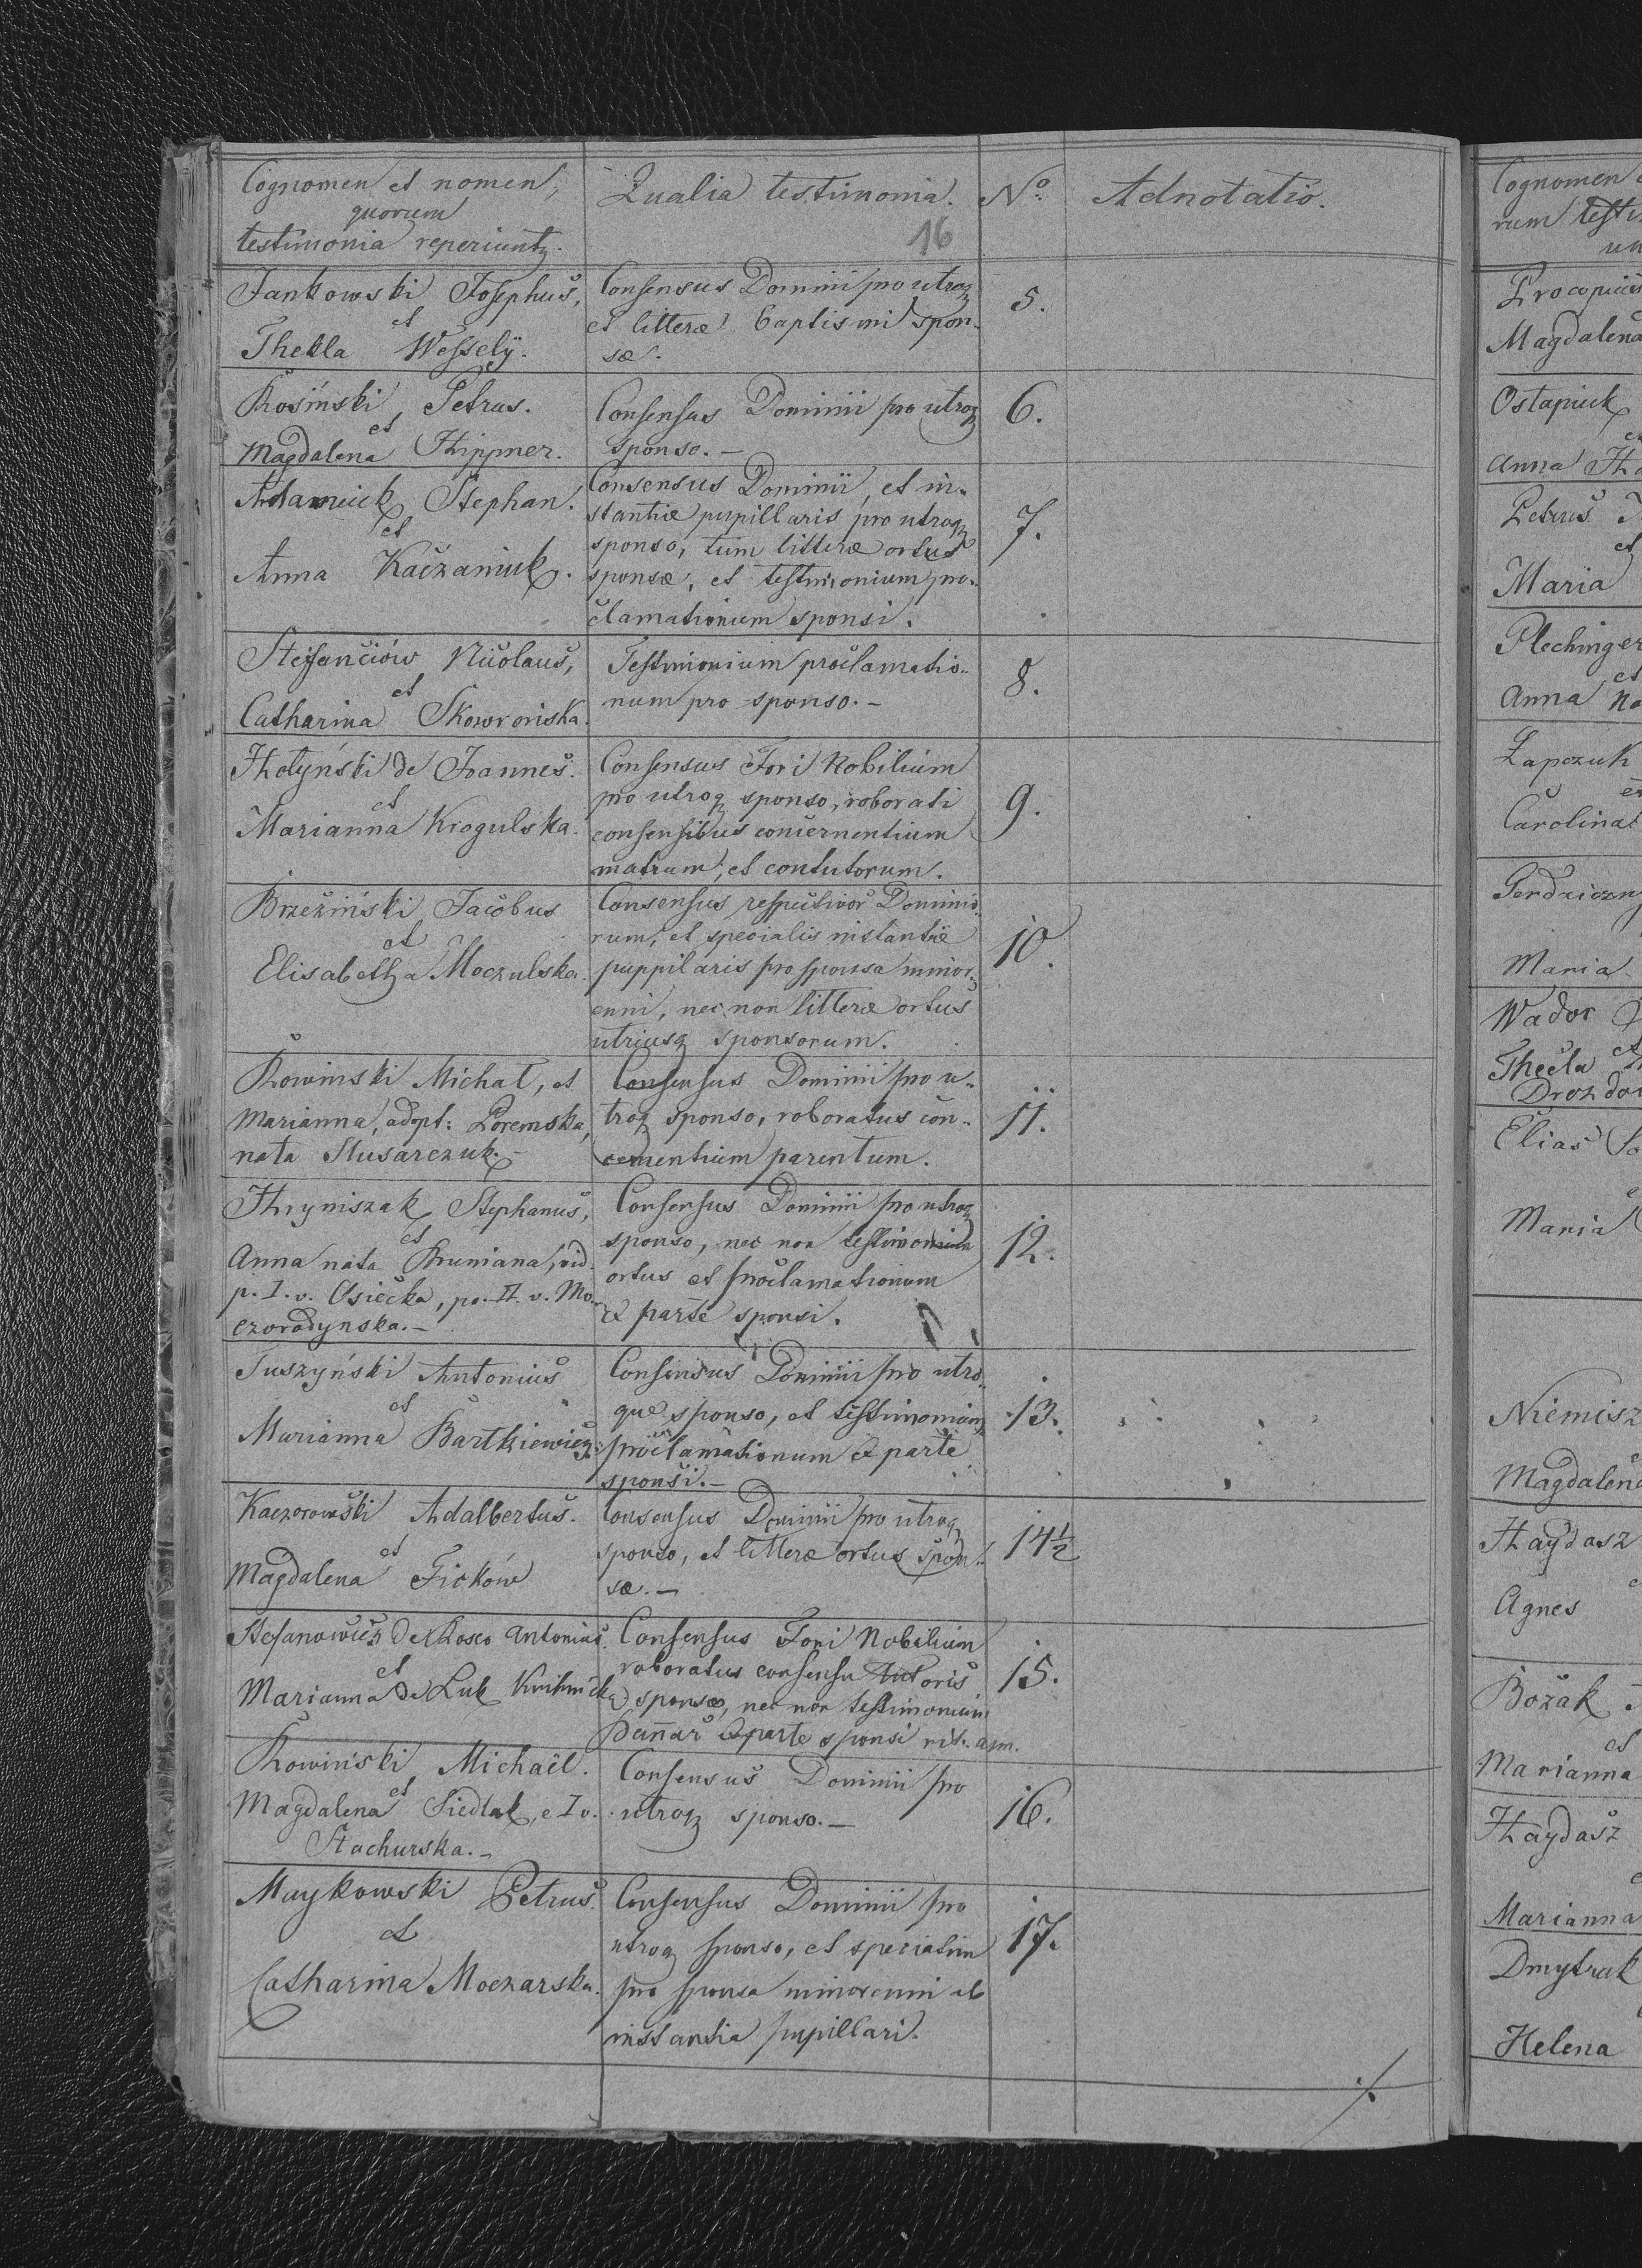 Cognomen et nomen,
quorum
testimonia reperiuntz.
Qualia testimonia.
16
No.
Adnotatio.
Jankowski Josephus,
et
Thekla Wessely.
Consensus Dominii pro utroq
et litteræ baptismi spon-
sæ.
5.
Rosiński, Petrus.
et
Magdalena Hippner.
Consensus Dominii pro utroq
sponso. —
6.
Adamciuk Stephan.
et
Anna Kaczaniuk.
Consensus Dominii, et in-
stantiæ pupillaris pro utroq
sponso, tum litteræ ortus
sponsæ, et testimonium pro-
clamationum sponsi.
7.
Stefanciów Nicolaus,
et
Catharina Skowrońska.
Testimonium proclamatio-
num pro sponso. —
8.
Hołyński de Joannes.
et
Marianna Krogulska.
Consensus Fori Nobilium
pro utroq sponso, roborati
consensibus concernentium
matrum, et contutorum.
9.
Brzeziński Jacobus
et
Elisabetha Moczulska.
Consensus respectivor Dominio-
rum, et specialis instantiæ
puppilaris pro sponsa minor-
enni, nec non litteræ ortus
utriusq sponsorum.
10.
Rowinski Michał, et
Marianna, adopt: Poremska,
nata Slusarczuk. —
Consensus Dominii pro u-
troq sponso, roboratus con-
cernentium parentum.
11.
Hryniszak Stephanus,
et
Anna nata Bruniana, vid.
p. I. v. Osiecka, po. II. v. Mo-
czoradynska. —
Consensus Dominii pro utroq
sponso, nec non testimonium
ortus et proclamationum
ex parte sponsi.
12.
Tuszyński Antonius
et
Marianna Bartkiewicz.
Consensus Dominii pro utro-
que sponso, et testimonium
proclamationum ex parte
sponsi. —
13.
Kaczorowski Adalbertus.
et
Magdalena Ficków
Consensus Dominii pro utroq
sponso, et litteræ ortus spon-
sæ. —
14½
Stefanowicz de Rosco Antonius.
et
Marianna de Luk
Consensus Fori Nobilium
roboratus consensu tutoris
sponsæ, nec non testimonium
ex parte sponsi rit. arm.
15.
Rowiński Michaël.
et
Magdalena Siedlak, e I v.
Stachurska. —
Consensus Dominii pro
utroq sponso. —
16.
Muykowski Petrus.
et
Catharina Moczarska.
Consensus Dominii pro
utroq sponso, et speciatim
pro sponsa minorenni ab
instantia pupillari.
17.
./.
Cognomen
rum testi
un
Procopius
Magdalena
Ostapiuk
et
Anna
Petrus
et
Maria
Plechinger
et
Anna
Łapczuk
et
Carolina
Maria
Wador
et
Thecla
Drozdo
Elias
Maria
Niemisz
Magdalena
Haydasz
Agnes
Bożak
et
Marianna
Haydasz
Marianna
Dmytruk
Helena